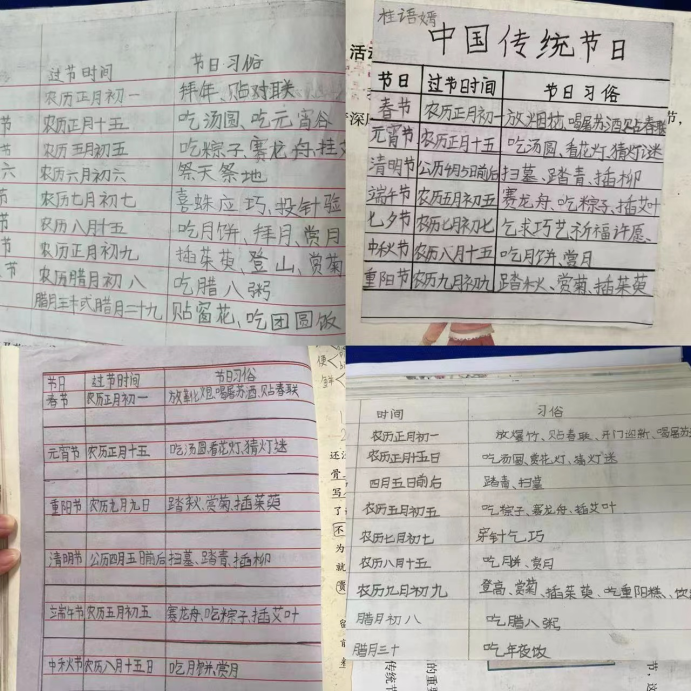 过节时间 节日习俗
农历正月初一 拜年、贴对联
节 农历正月十五 吃汤圆、吃元宵
节 农历五月初五 吃粽子、赛龙舟、挂艾
六 农历六月初六 祭天祭地
节 农历七月初七 喜蛛应巧、投针验
节 农历八月十五 吃月饼、拜月、赏月
节 农历正月初九 插茱萸、登山、赏菊
节 农历腊月初八 吃腊八粥
腊月三十或腊月二十九 贴窗花、吃团圆饭
桂语婿
中国传统节日
节日 过节日时间 节日习俗
春节 农历正月初一 放烟 喝屠苏酒、贴春联
元宵节 农历正月十五 吃汤圆、看花灯、猜灯谜
清明节 公历4月5日前后 扫墓、踏青、插柳
端午节 农历五月初五 赛龙舟、吃粽子、插艾叶
七夕节 农历七月初七 乞求巧艺、祈福许愿、
中秋节 农历八月十五 吃月饼、赏月
重阳节 农历九月初九 踏秋、赏菊、插茱萸
活
节日 过节时间 节日习俗
春节 农历正月初一 放 喝屠苏酒、贴春联
元宵节 农历正月十五 吃汤圆、看花灯、猜灯迷
重阳节 农历九月九日 踏秋、赏菊、插茱萸
清明节 公历四月五日前后 扫墓、踏青、插柳
端午节 农历五月初五 赛龙舟、吃粽子、插艾叶
中秋节 农历八月十五日 吃月饼、赏月
时间 习俗
农历正月初一 放爆竹、贴春联、开门迎新、喝屠苏
农历正月十五日 吃汤圆、赏花灯、猜灯迷
四月五日前后 踏青、扫墓
农历五月初五 吃粽子、赛龙舟、插艾叶
农历七月初七 穿针乞巧
农历八月十五 吃月饼、赏月
农历九月初九 登高、赏菊、插茱萸、吃重阳糕、饮
腊月初八 吃腊八粥
腊月三十 吃年夜饭
的重要
传统节